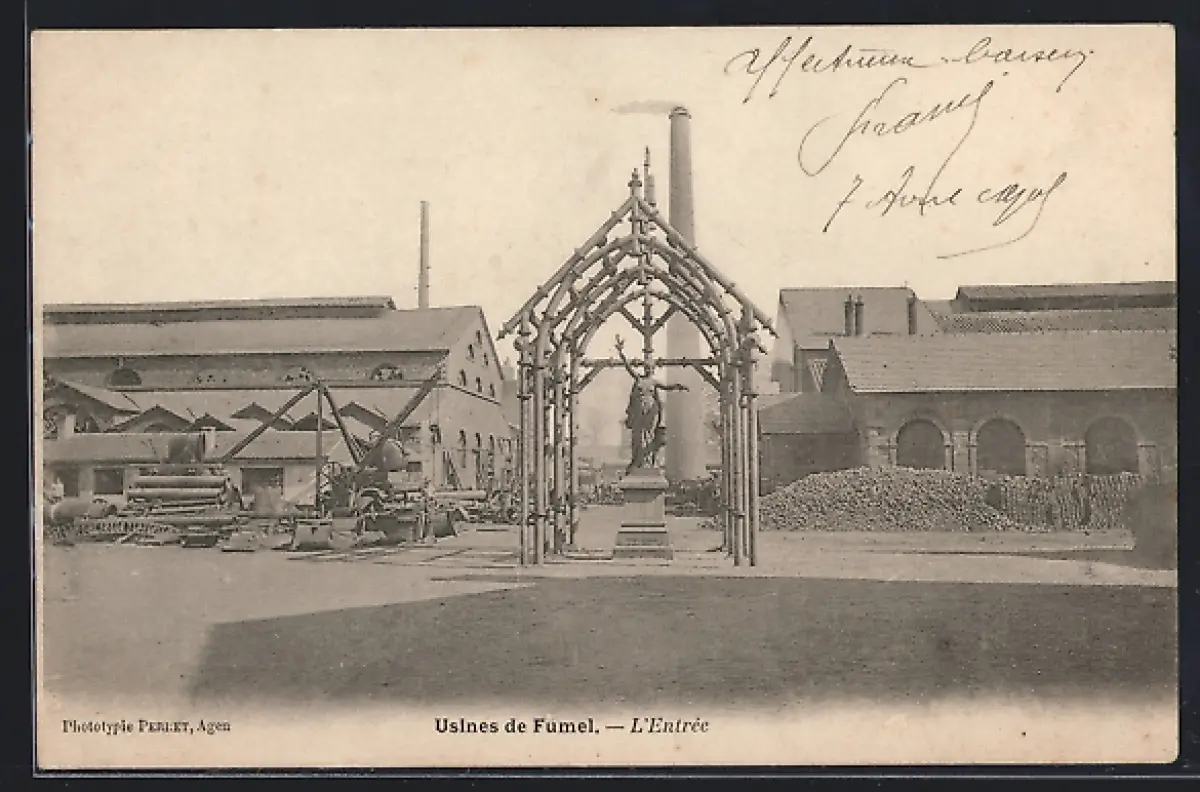 affectueux baisers
7 Avril
Phototypie PERRET, Agen
Usines de Fumel. — L'Entrée